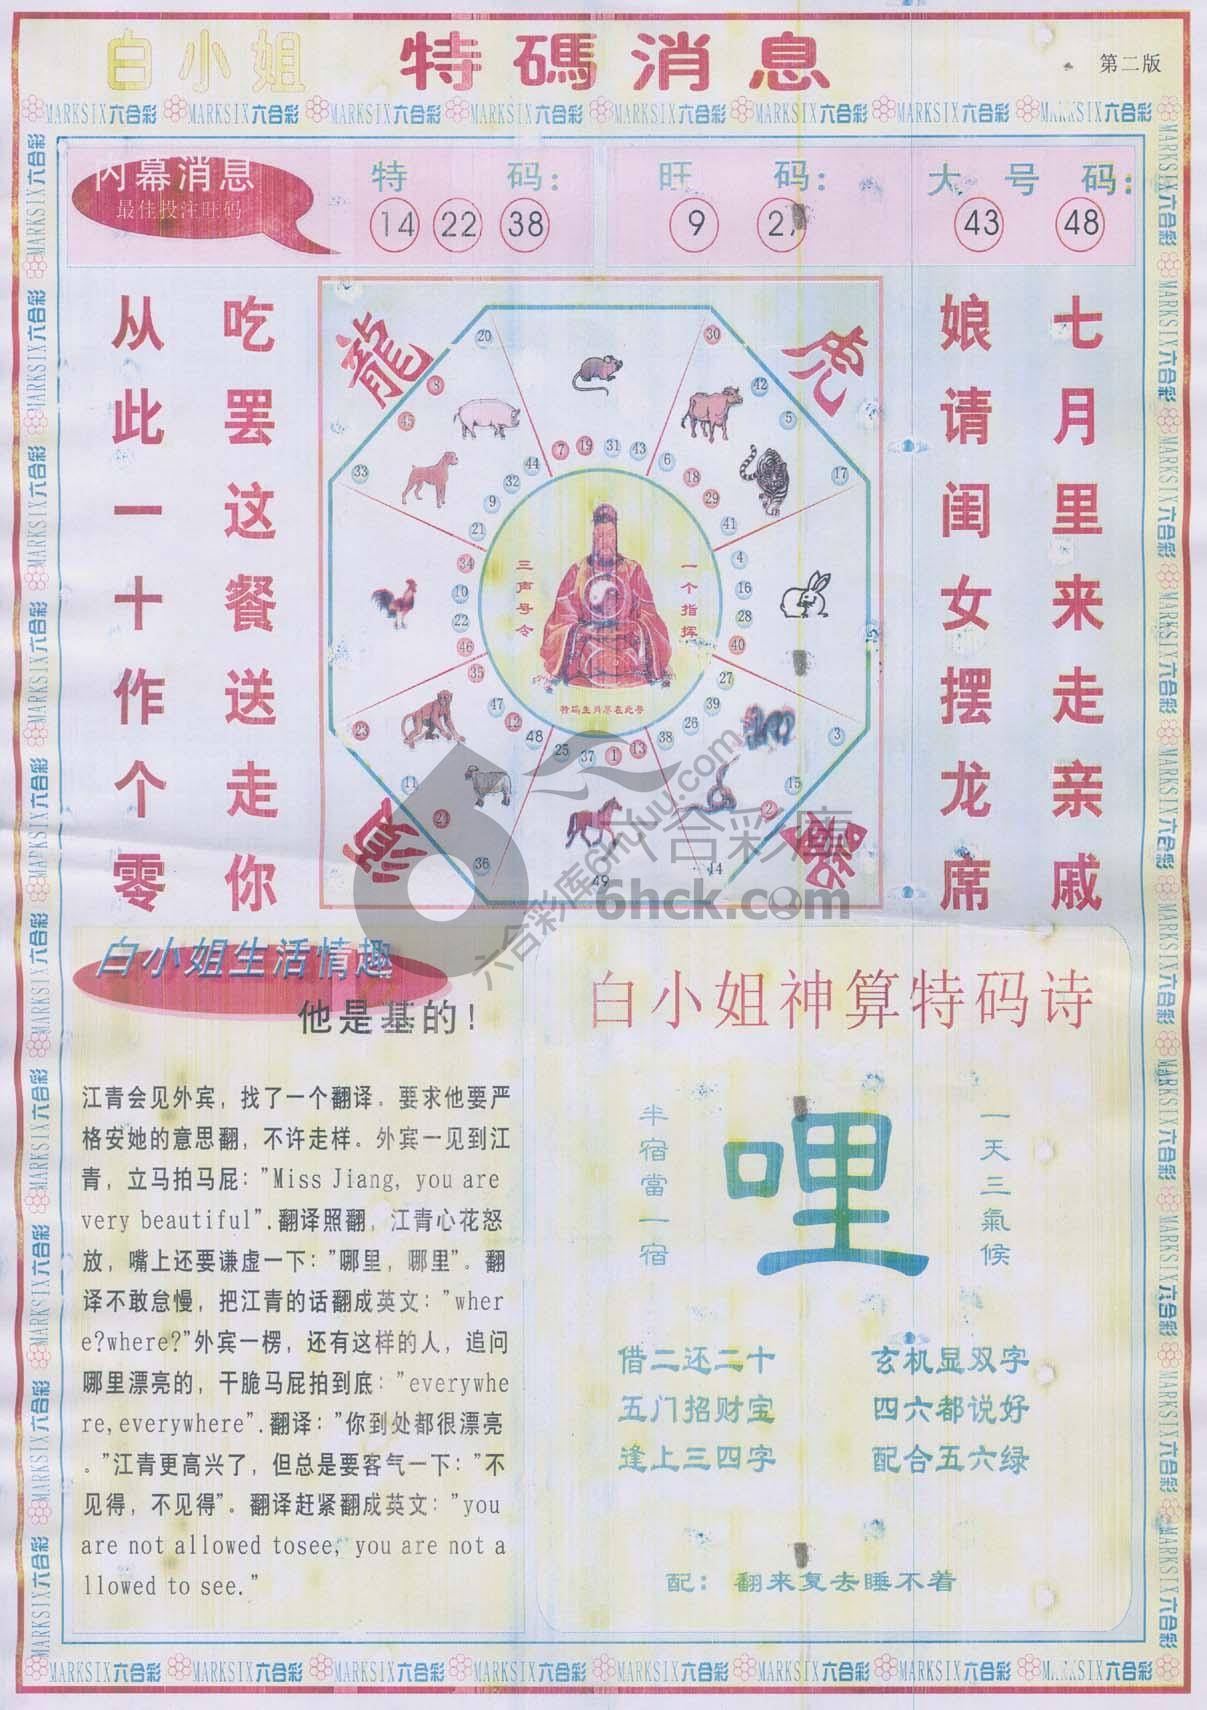 白小姐 特碼消息
第二版
MARKSIX六合彩 MARKSIX六合彩 MARKSIX六合彩 MARKSIX六合彩 MARKSIX六合彩 MARKSIX六合彩 MARKSIX六合彩 MARKSIX六合彩
内幕消息
最佳投注旺码
特码：
14 22 38
旺码：
9
大号码：
43 48
七月里来走亲戚
娘请闺女摆龙席
吃罢这餐送走你
从此一十作个零
龍
虎
20
30
8
45
33
42
5
17
44
32
9
21
7 19 31 43
6
18
29
41
34
10
22
46
4
16
28
40
35
47
12
48
23
11
21
36
25 37 1 13
49
27
39
26
38
3
15
2
14
一个指挥
三声号令
特码生肖尽在此寻
六合彩库
6hck.com
六合彩库6htuku.com
白小姐生活情趣
他是基的！
江青会见外宾，找了一个翻译。要求他要严
格安她的意思翻，不许走样。外宾一见到江
青，立马拍马屁："Miss Jiang, you are
very beautiful".翻译照翻，江青心花怒
放，嘴上还要谦虚一下："哪里，哪里"。翻
译不敢怠慢，把江青的话翻成英文："wher
e?where?"外宾一楞，还有这样的人，追问
哪里漂亮的，干脆马屁拍到底："everywhe
re,everywhere".翻译："你到处都很漂亮
。"江青更高兴了，但总是要客气一下："不
见得，不见得"。翻译赶紧翻成英文："you
are not allowed tosee, you are not a
llowed to see."
白小姐神算特码诗
一天三氣候
半宿當一宿
哩
借二还二十 玄机显双字
五门招财宝 四六都说好
逢上三四字 配合五六绿
配：翻来复去睡不着
MARKSIX六合彩 MARKSIX六合彩 MARKSIX六合彩 MARKSIX六合彩 MARKSIX六合彩 MARKSIX六合彩 MARKSIX六合彩 MARKSIX六合彩